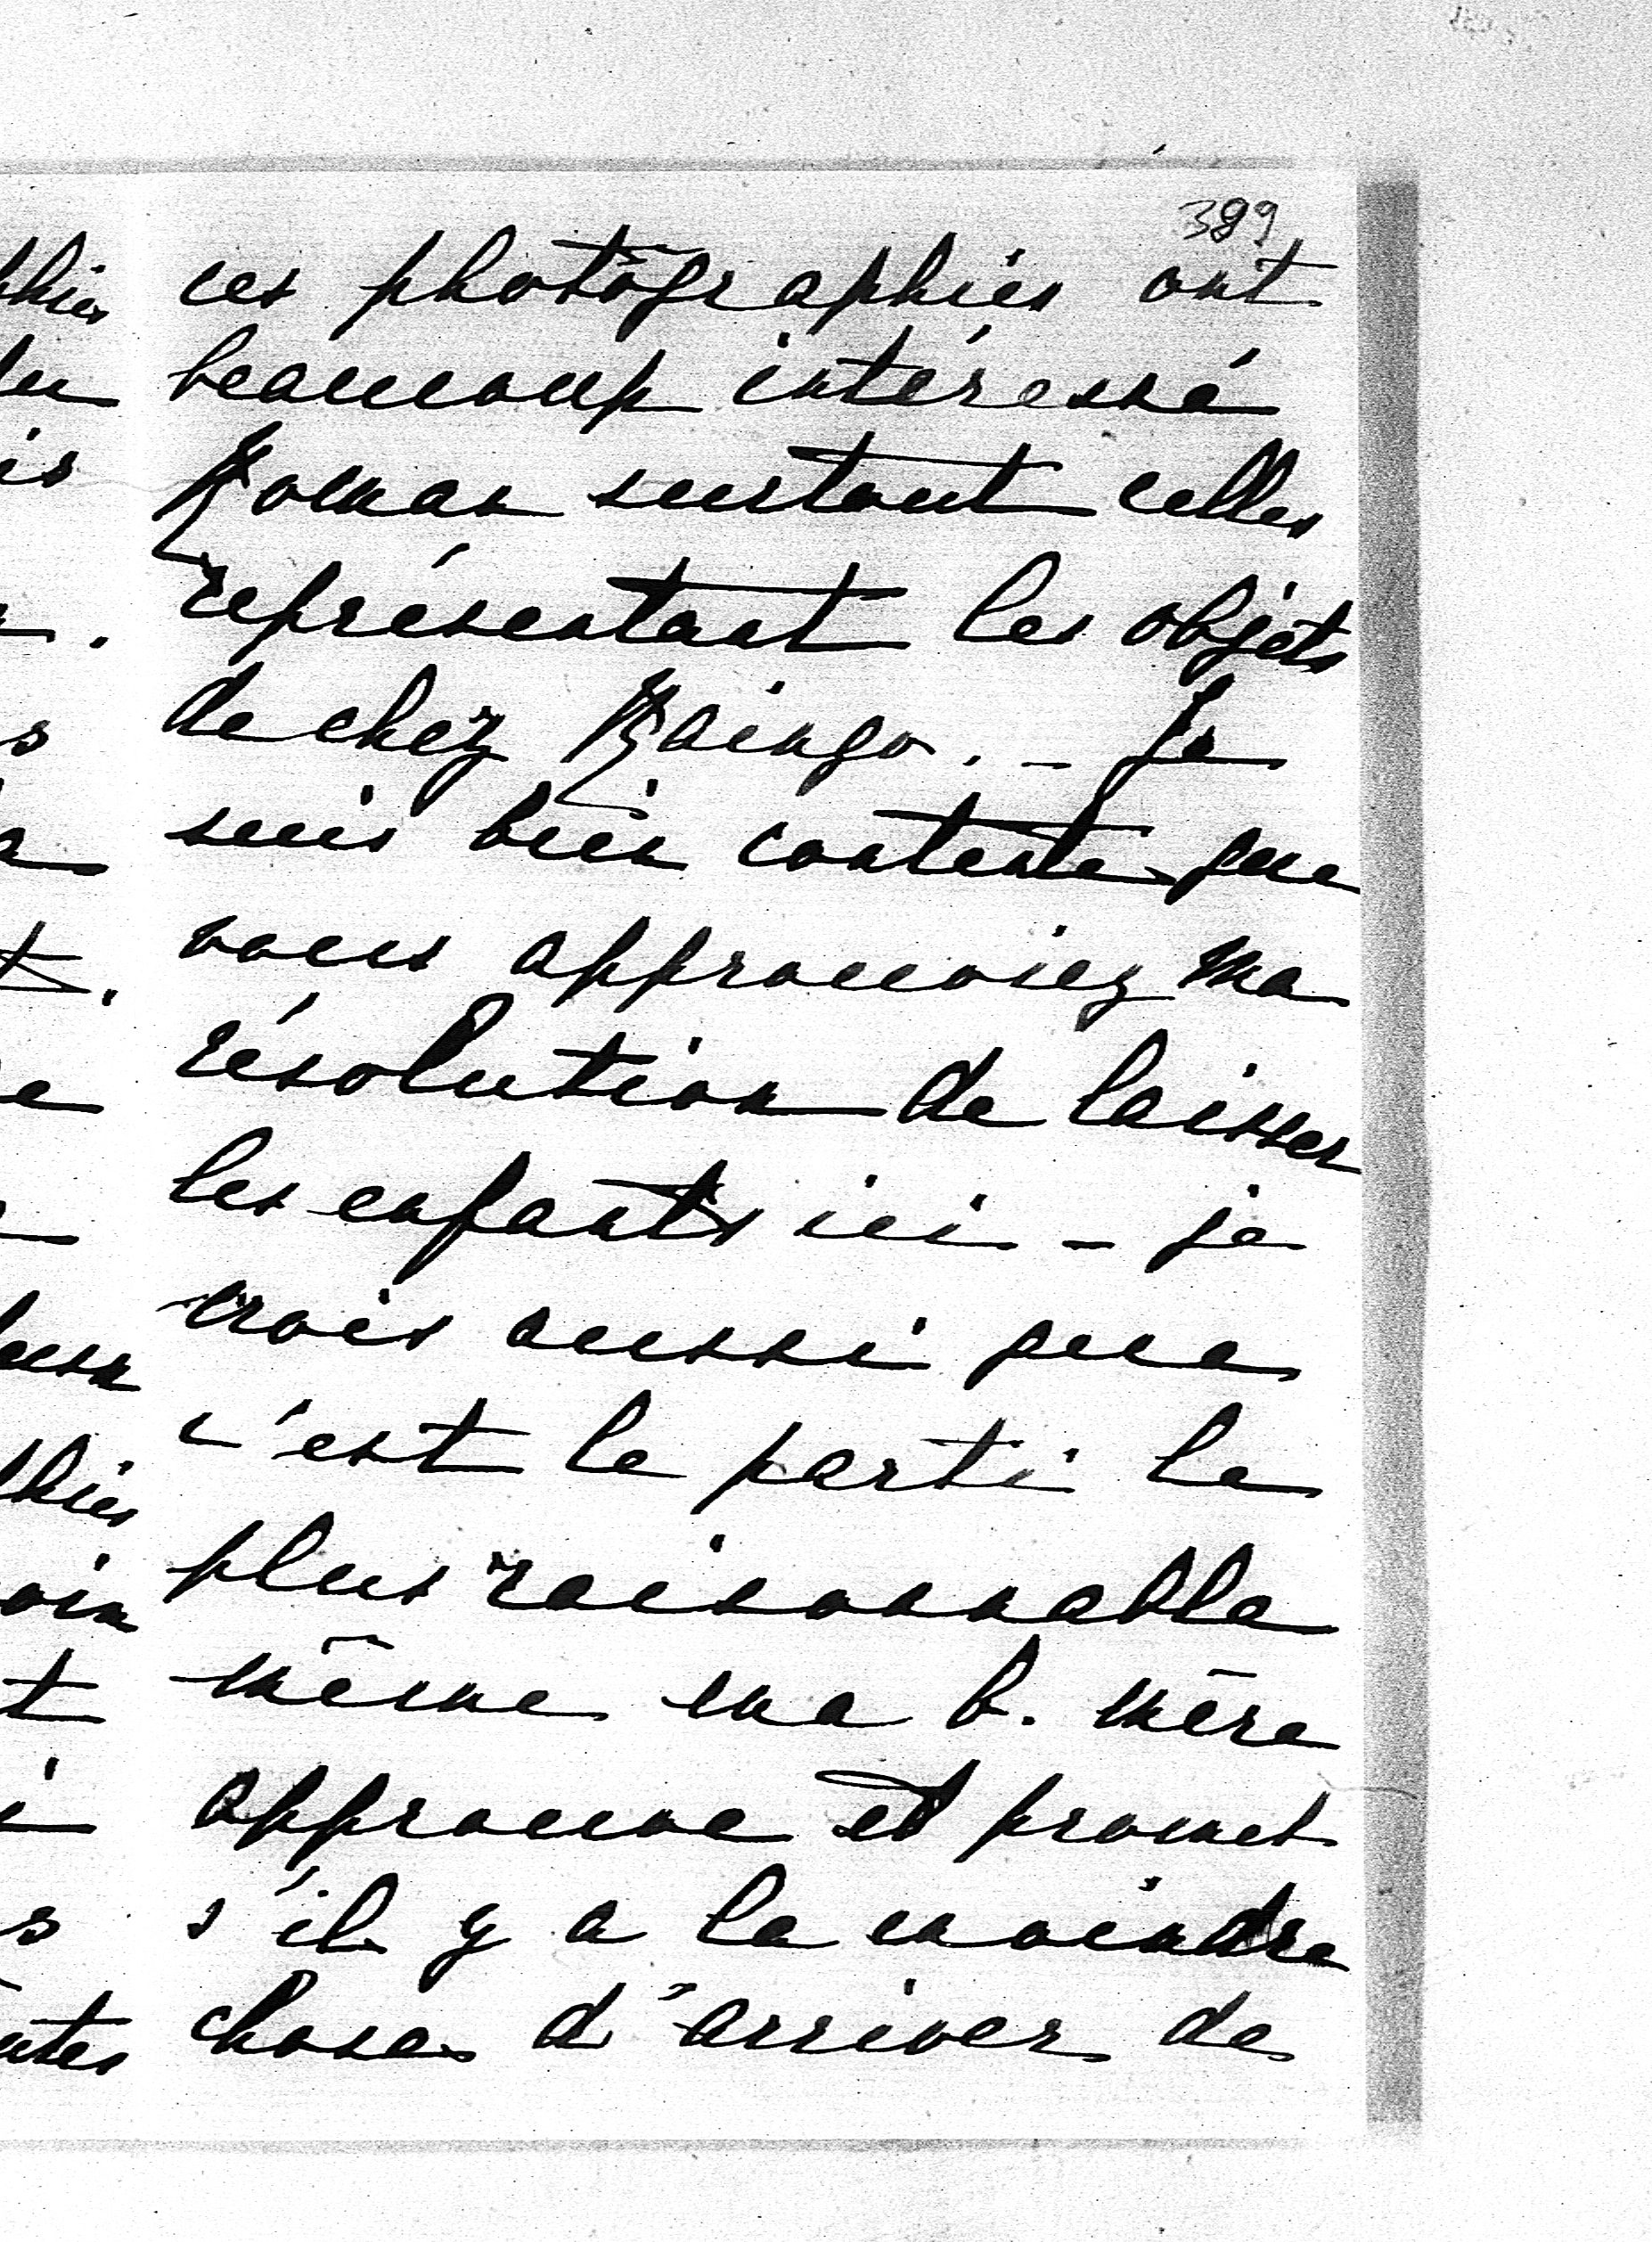 389
ces photographies ont
beaucoup intéressé
Roman surtout celles
représentant les objets
de chez Raingo. – Je
suis bien contente que
vous approuviez ma
résolution de laisser
les enfants ici – je
crois aussi que
c'est le parti le
plus raisonnable
même ma b. mère
approuve et promet
s'il y a la moindre
chose d'arriver de